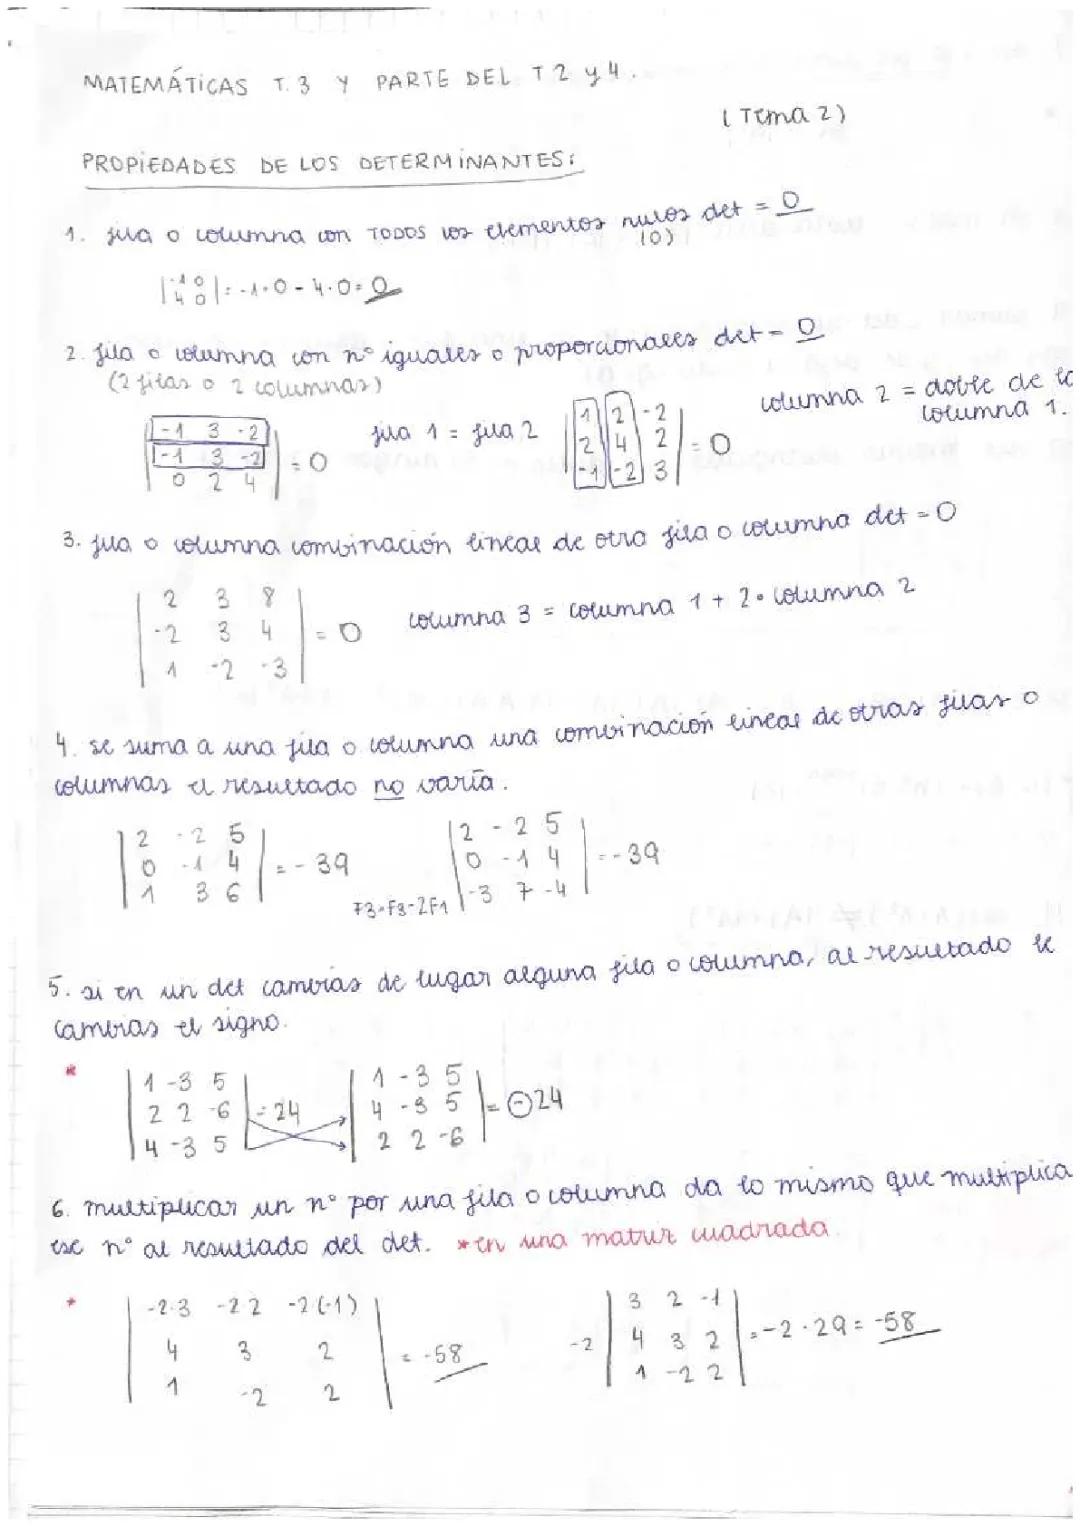 MATEMÁTICAS T.3 Y PARTE DEL T2 y 4.
(Tema 2)
PROPIEDADES DE LOS DETERMINANTES:
1. fila o columna con TODOS los elementos nulos det = 0
(0)
|-1 0| = -1·0 - 4·0 = 0
|4 0|
2. fila o columna con nº iguales o proporcionales det = 0
(2 filas o 2 columnas)
|-1 3 -2|
|-1 3 -2| = 0
|0 2 4|
fila 1 = fila 2
|1 2 -2|
|2 4 2| = 0
|-1 -2 3|
columna 2 = doble de la
columna 1.
3. fila o columna combinación lineal de otra fila o columna det = 0
|2 3 8|
|-2 3 4| = 0
|1 -2 -3|
columna 3 = columna 1 + 2· columna 2
4. se suma a una fila o columna una combinación lineal de otras filas o
columnas el resultado no varía.
|2 -2 5|
|0 -1 4| = -39
|1 3 6|
F3=F3-2F1
|2 -2 5|
|0 -1 4| = -39
|-3 7 -4|
5. si en un det cambias de lugar alguna fila o columna, al resultado le
cambias el signo.
*
|1 -3 5|
|2 2 -6| = 24
|4 -3 5|
|1 -3 5|
|4 -3 5| = -24
|2 2 -6|
6. multiplicar un nº por una fila o columna da lo mismo que multiplica
ese nº al resultado del det. *en una matriz cuadrada.
*
|-2·3 -2·2 -2(-1)|
|4 3 2| = -58
|1 -2 2|
-2
|3 2 -1|
|4 3 2| = -2·29 = -58
|1 -2 2|